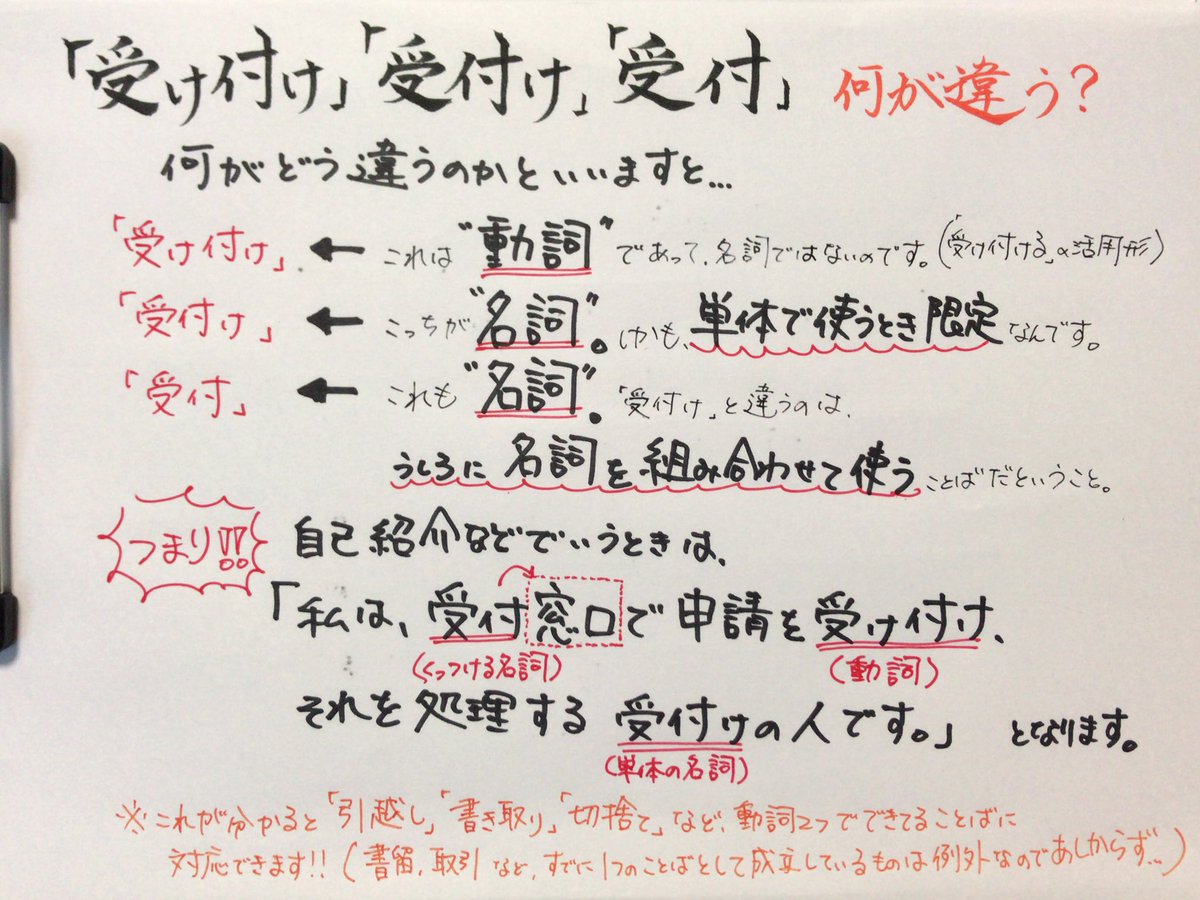 「受け付け」「受付け」「受付」何が違う?
何がどう違うのかといいますと…
「受け付け」← これは"動詞"であって、名詞ではないのです。(「受け付ける」の活用形)
「受付け」← こっちが"名詞"。しかも、単体で使うとき限定なんです。
「受付」← これも"名詞"。「受付け」と違うのは、
うしろに名詞を組み合わせて使うことばだということ。
つまり!! 自己紹介などでいうときは、
「私は、受付窓口で申請を受け付け、
(くっつける名詞) (動詞)
それを処理する受付けの人です。」となります。
(単体の名詞)
※これが分かると「引越し」「書き取り」「切捨て」など、動詞2つでできてることばに
対応できます!!(書留、取引など、すでに1つのことばとして成立しているものは例外なのであしからず…)